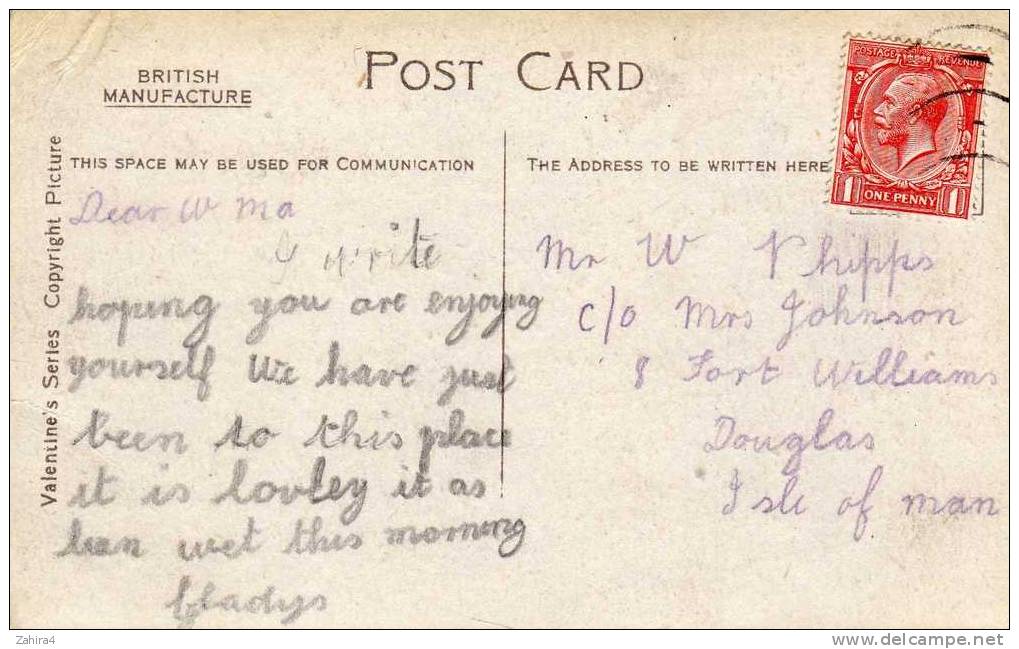 POST CARD
BRITISH
MANUFACTURE
POSTAGE REVENUE
1 ONE PENNY 1
Valentine's Series Copyright Picture
THIS SPACE MAY BE USED FOR COMMUNICATION
Dear W Ma
I write
hoping you are enjoying
yourself We have just
been to this place
it is lovley it as
bean wet this morning
Gladys
THE ADDRESS TO BE WRITTEN HERE
Mr W Phipps
c/o Mrs Johnson
8 Fort Williams
Douglas
Isle of man
Zahira4
www.delcampe.net